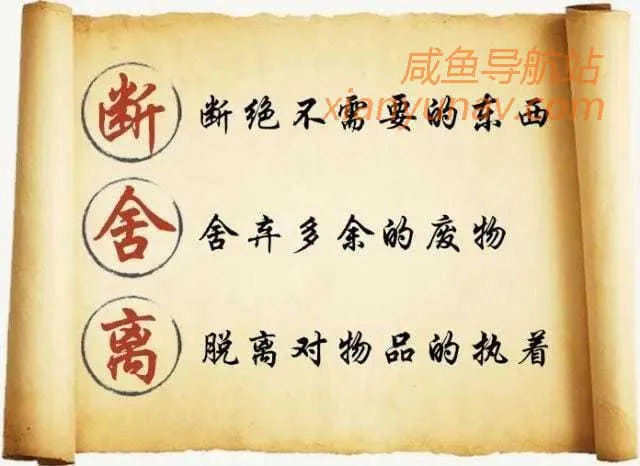 咸鱼导航站
xianyunav.com
断 断绝不需要的东西
舍 舍弃多余的废物
离 脱离对物品的执着